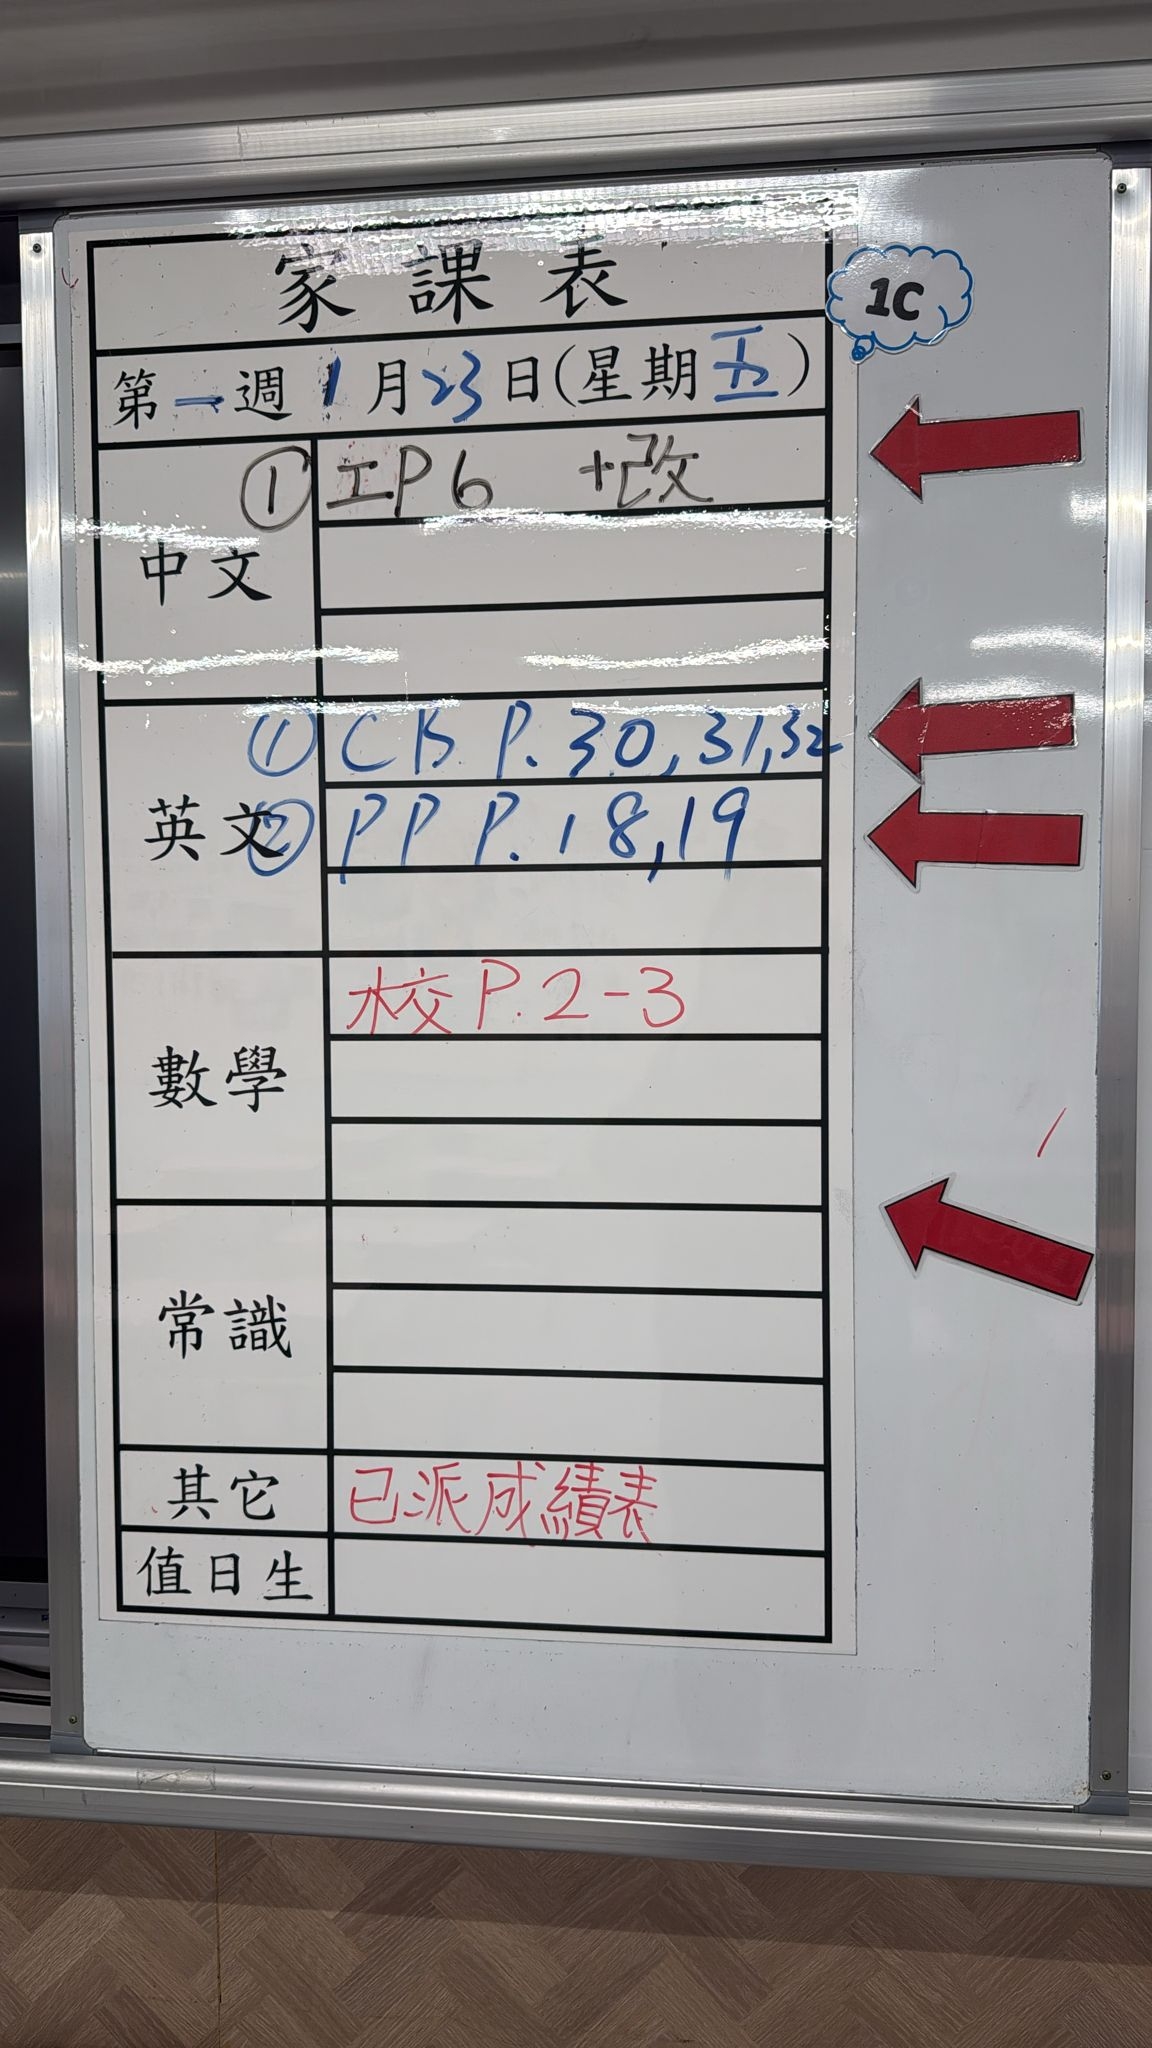 家課表
1C
第一週 1月23日(星期五)
中文
① 工P6 +改
英文
① CB P. 30, 31, 32
② PP P. 18, 19
數學
校 P. 2-3
常識
其它
已派成績表
值日生